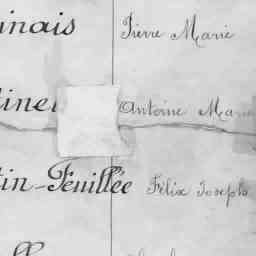 inais Pierre Marie
tinel Antoine Marie
tin-Feuillée Félix Joseph